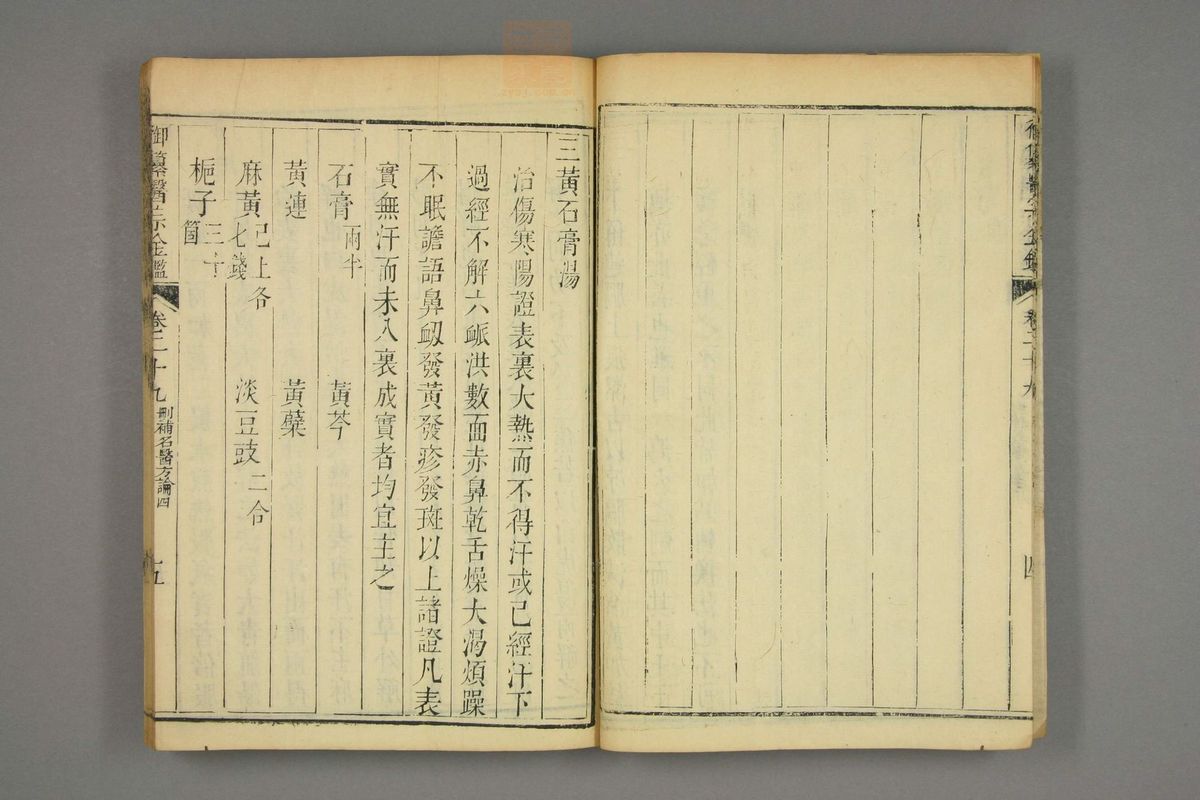 三黃石膏湯
治傷寒陽證表裏大熱而不得汗或已經汗下
過經不解六䘑洪數面赤鼻乾舌燥大渴煩躁
不眠譫語鼻衂發黃發疹發斑以上諸證凡表
實無汗而未入裏成實者均宜主之
石膏 兩半 黃芩
黃連 黃蘗
麻黃 已上各七錢 淡豆豉 二合
梔子 三十箇
御纂醫宗金鑑 卷二十九 刪補名醫方論四 五